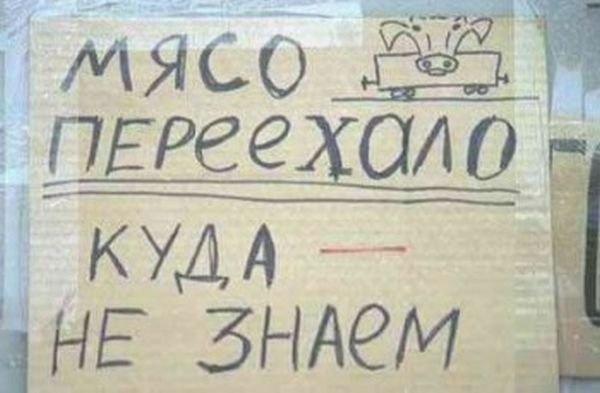 МЯСО
ПЕРеехало
КУДА —
НЕ ЗНАеМ